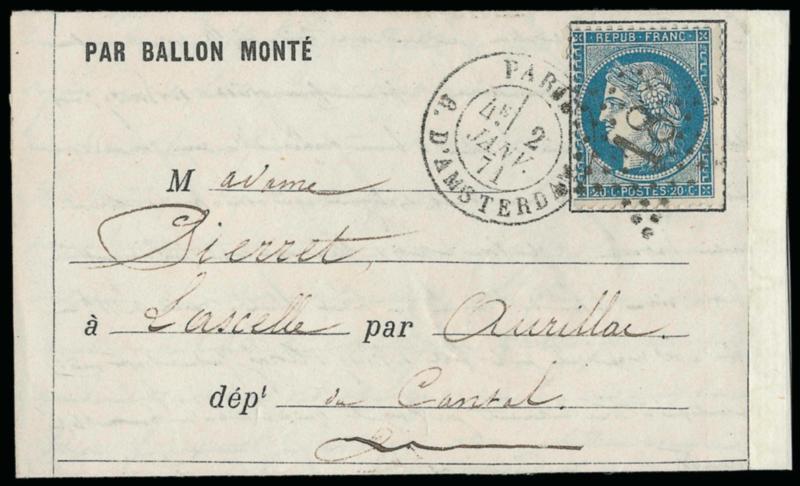 PAR BALLON MONTÉ
REPUB. FRANC.
PARIS
R. D'AMSTERDAM
4E 2
JANV.
71
18
POSTES 20 C
Madame
Pierret,
à Lascelle par Aurillac
dépt du Cantal.